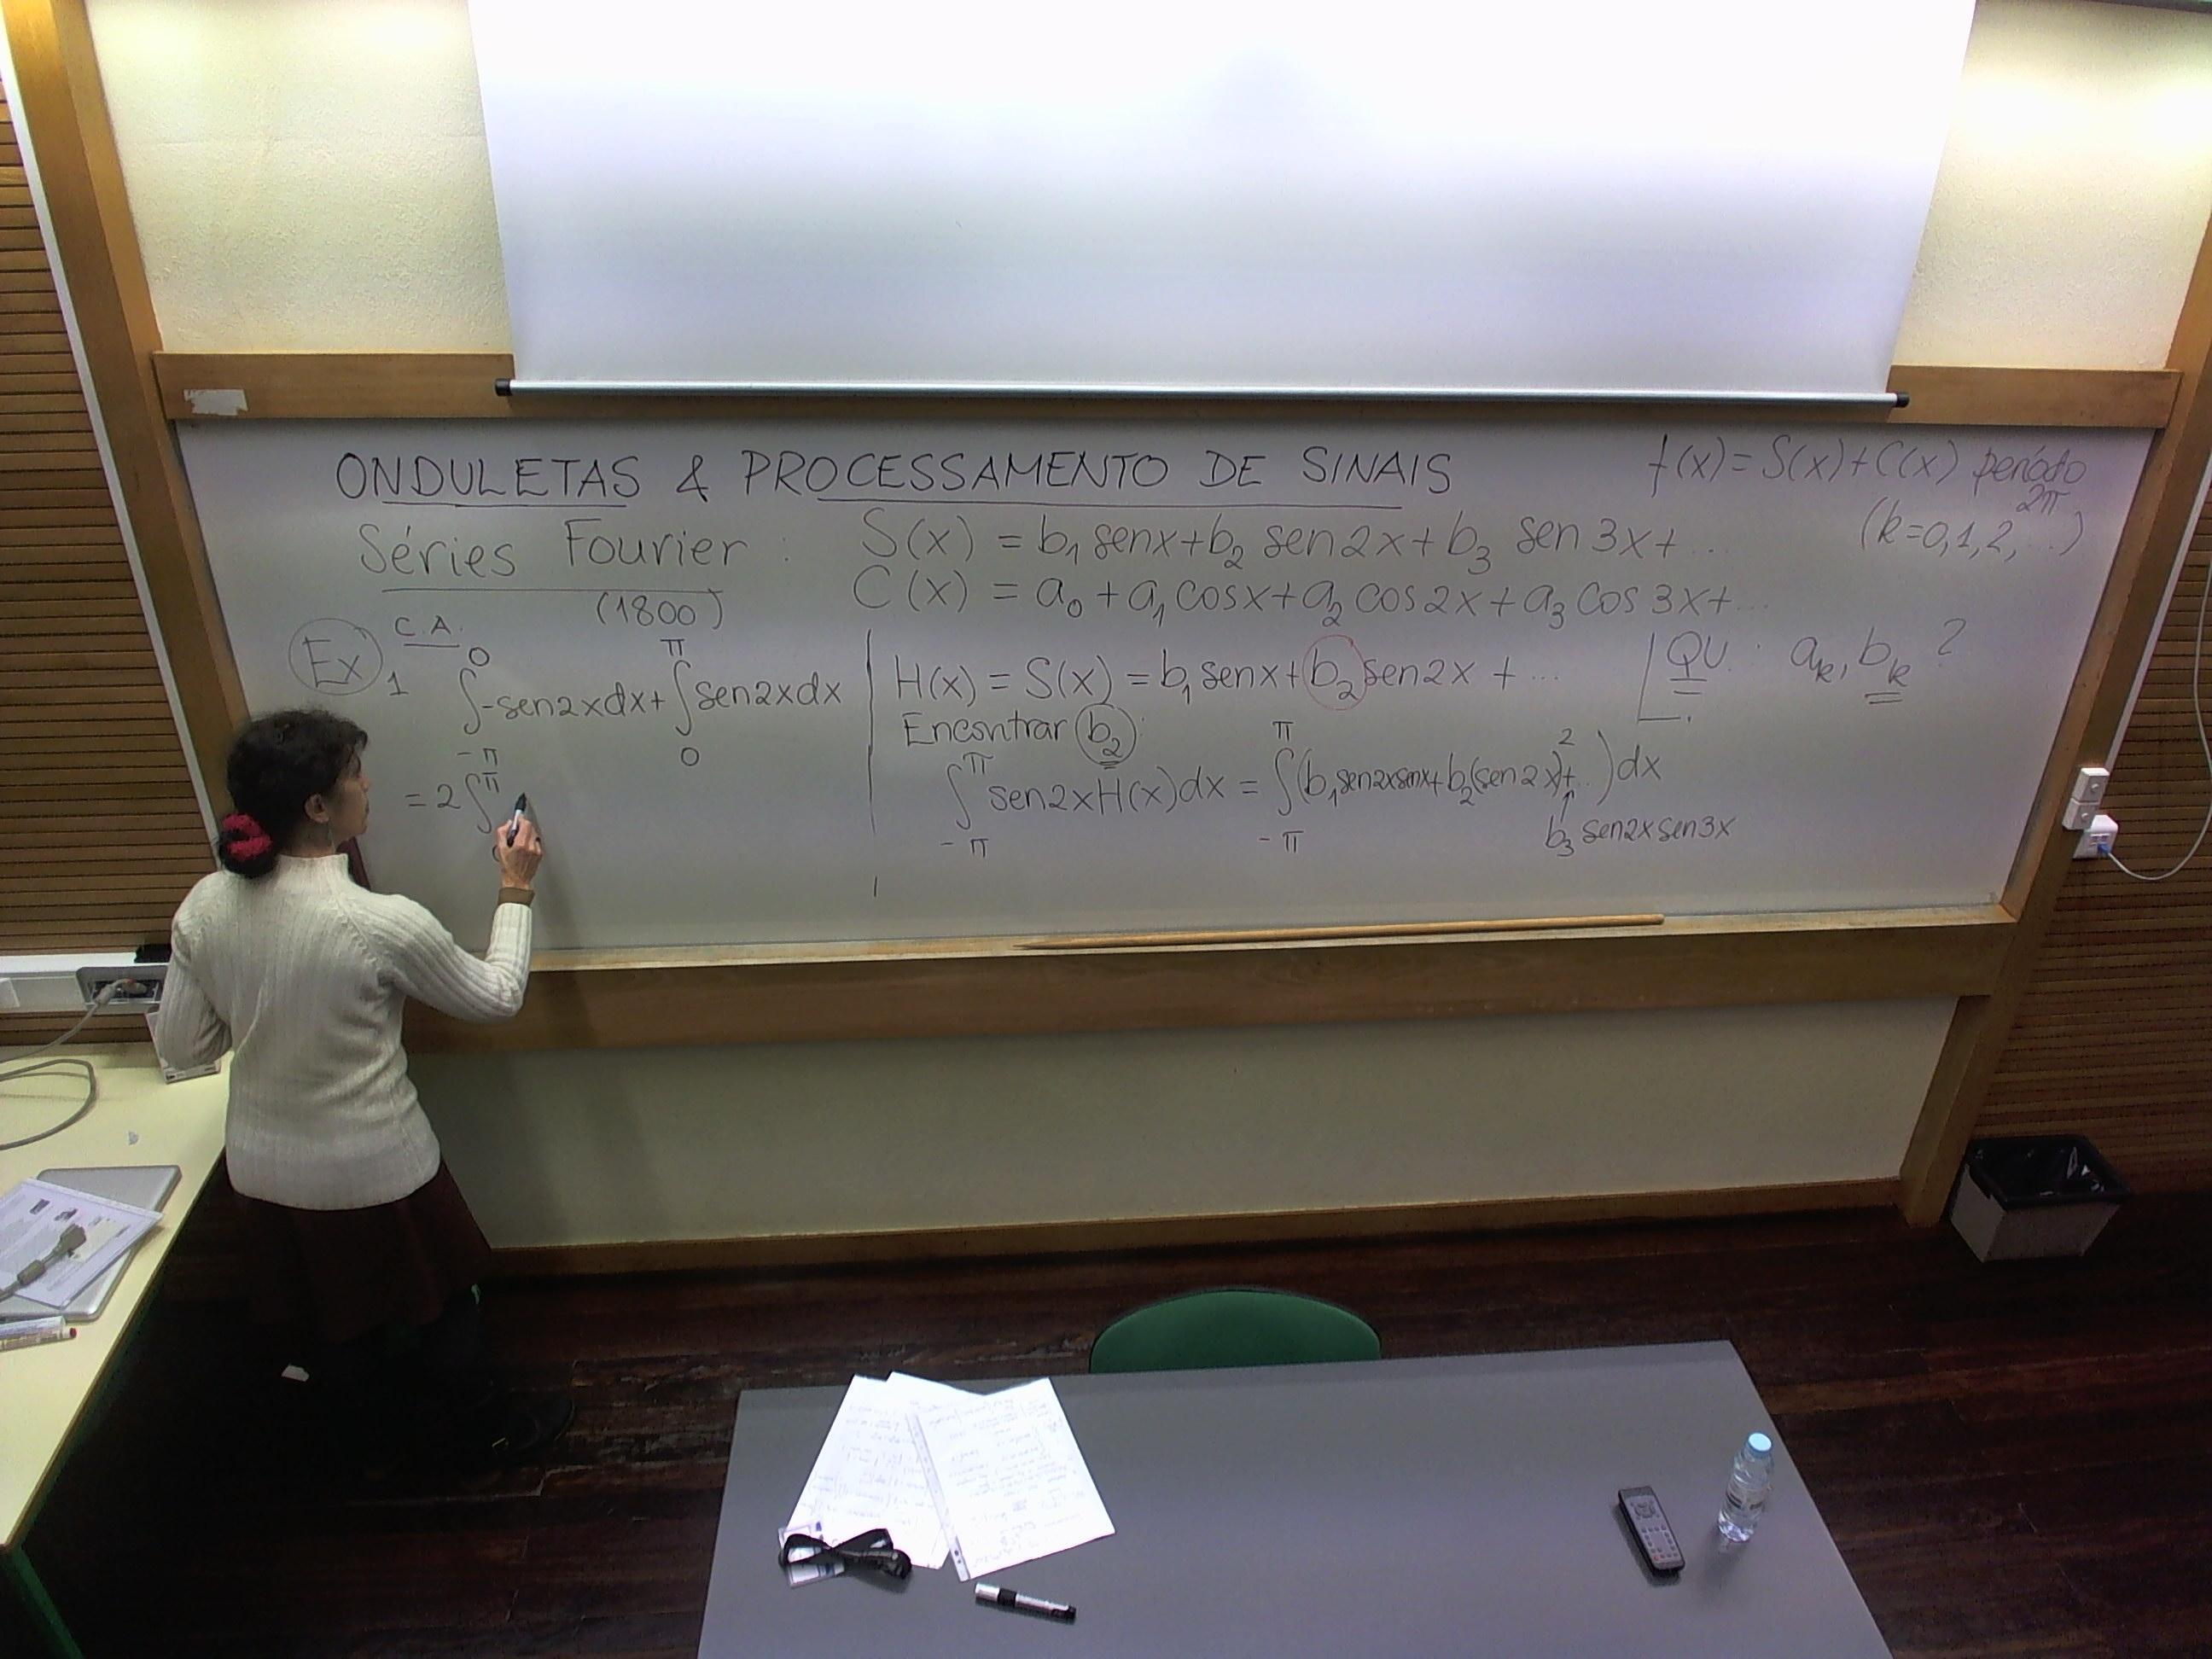 ONDULETAS & PROCESSAMENTO DE SINAIS
f(x) = S(x) + C(x) período 2π
(k=0,1,2,...)
Séries Fourier :
(1800)
S(x) = b₁ senx + b₂ sen 2x + b₃ sen 3x + ...
C(x) = a₀ + a₁ cosx + a₂ cos 2x + a₃ cos 3x + ...
Ex 1
C.A.
∫_{-π}^{0} -sen2xdx + ∫_{0}^{π} sen2xdx
= 2∫^{π}
H(x) = S(x) = b₁ senx + b₂ sen2x + ...
Encontrar b₂
∫_{-π}^{π} sen2xH(x)dx = ∫_{-π}^{π} (b₁sen2xsenx + b₂(sen2x)² + ...)dx
b₃ sen2xsen3x
QU : aₖ, bₖ ?